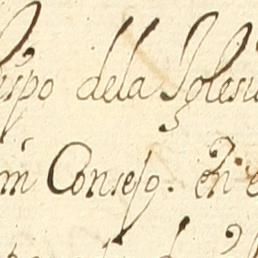 ispo dela Iglesi
mi Consejo. en e